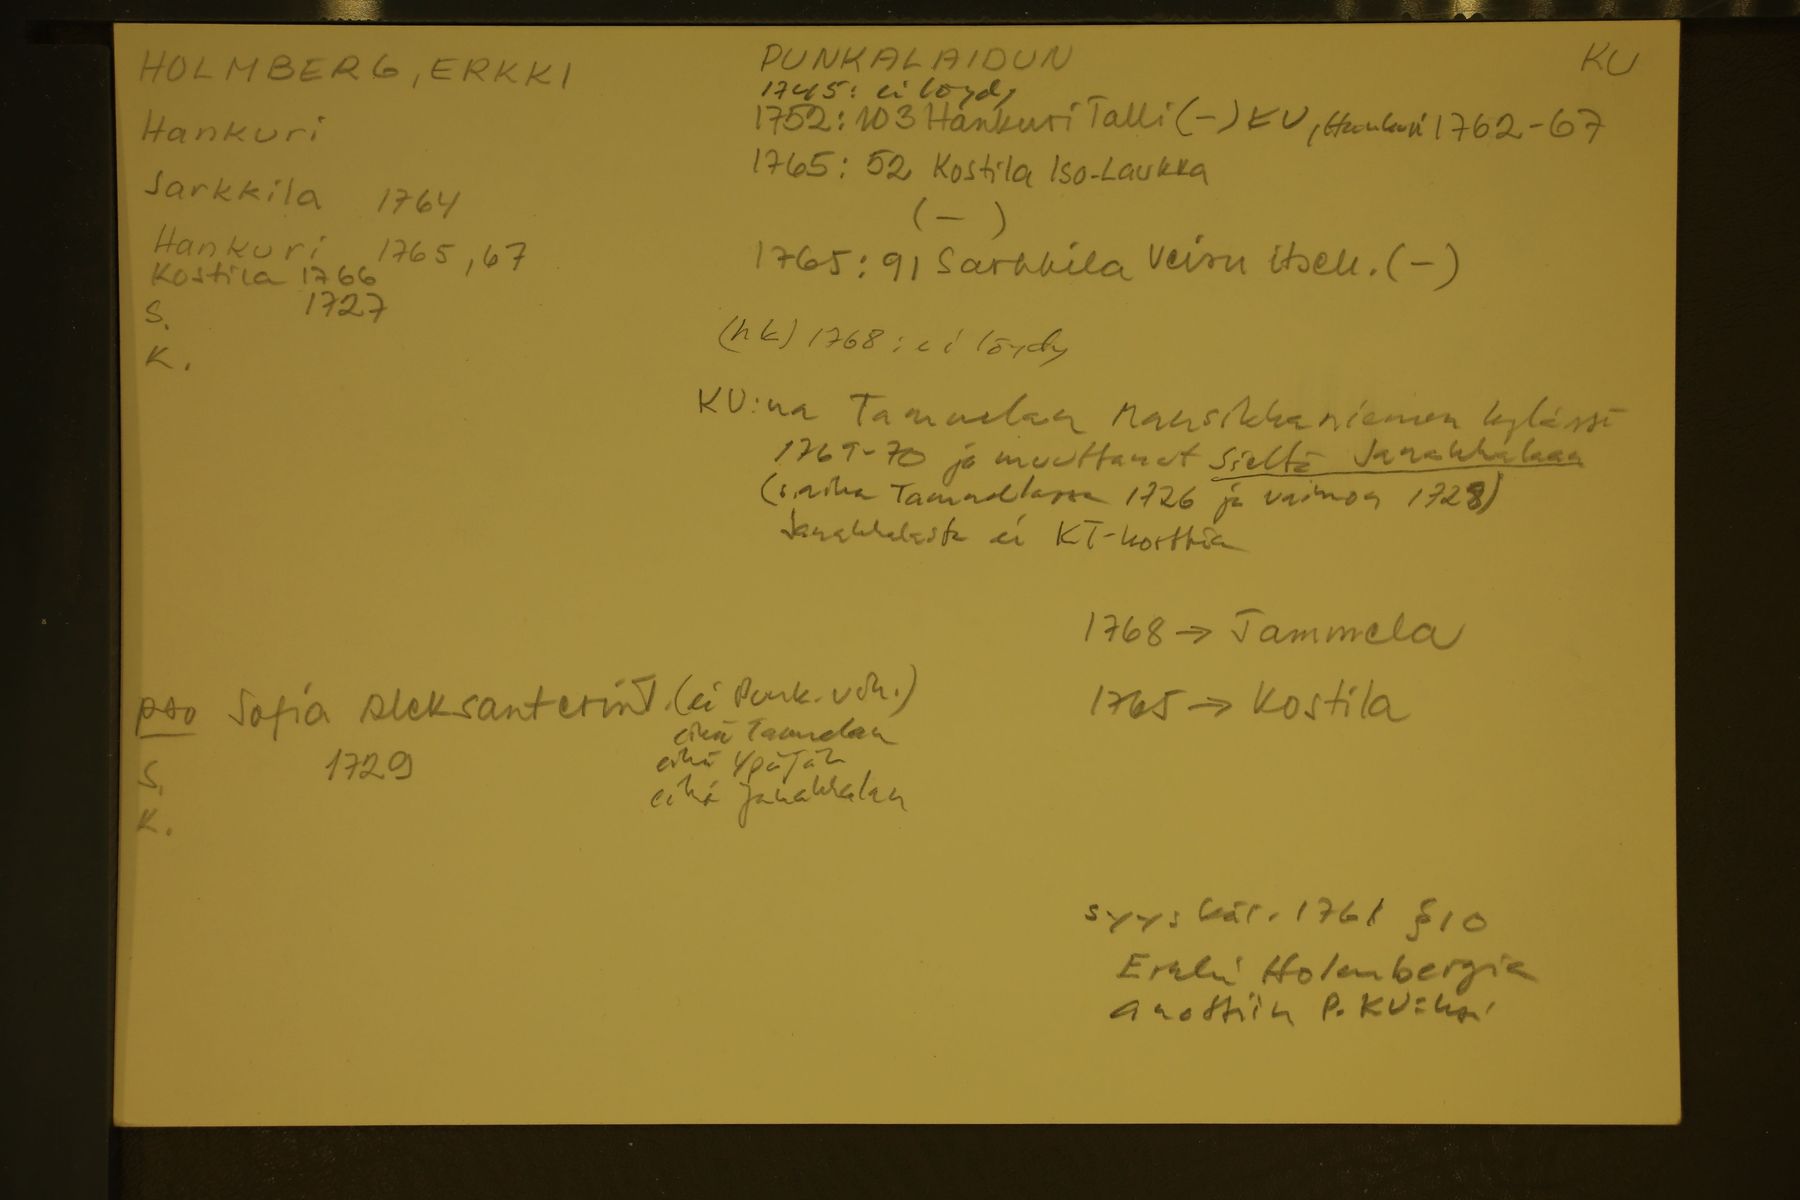 HOLMBERG, ERKKI
Hankuri
Sarkkila 1764
Hankuri 1765, 67
Kostila 1766
S. 1727
K.
PUNKALAIDUN
KU
1745: ei löydy
1752: 103 Hankuri Talli (-) KU, Hankuri 1762-67
1765: 52 Kostila Iso-Laukka
(-)
1765: 91 Sarkkila Veisu itsell. (-)
(hk) 1768: ei löydy
KU:na Tammelan Mansikkaniemen kylässä
1769-70 ja muuttanut sieltä Janakkalaan
(s.aika Tammelassa 1726 ja vaimon 1728)
Janakkalasta ei KT-korttia
1768 → Tammela
1765 → Kostila
pso Sofia Aleksanterint. (ei Punk. vih.)
eikä Tammelan
eikä Ypäjän
eikä Janakkalan
S. 1729
K.
syyskär. 1761 §10
Erkki Holmbergia
anottiin P. KU:ksi